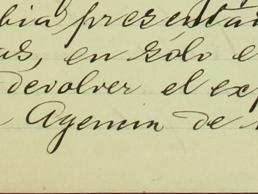 bia presentá
as, en sólo e
devolver el exp
Agencia de